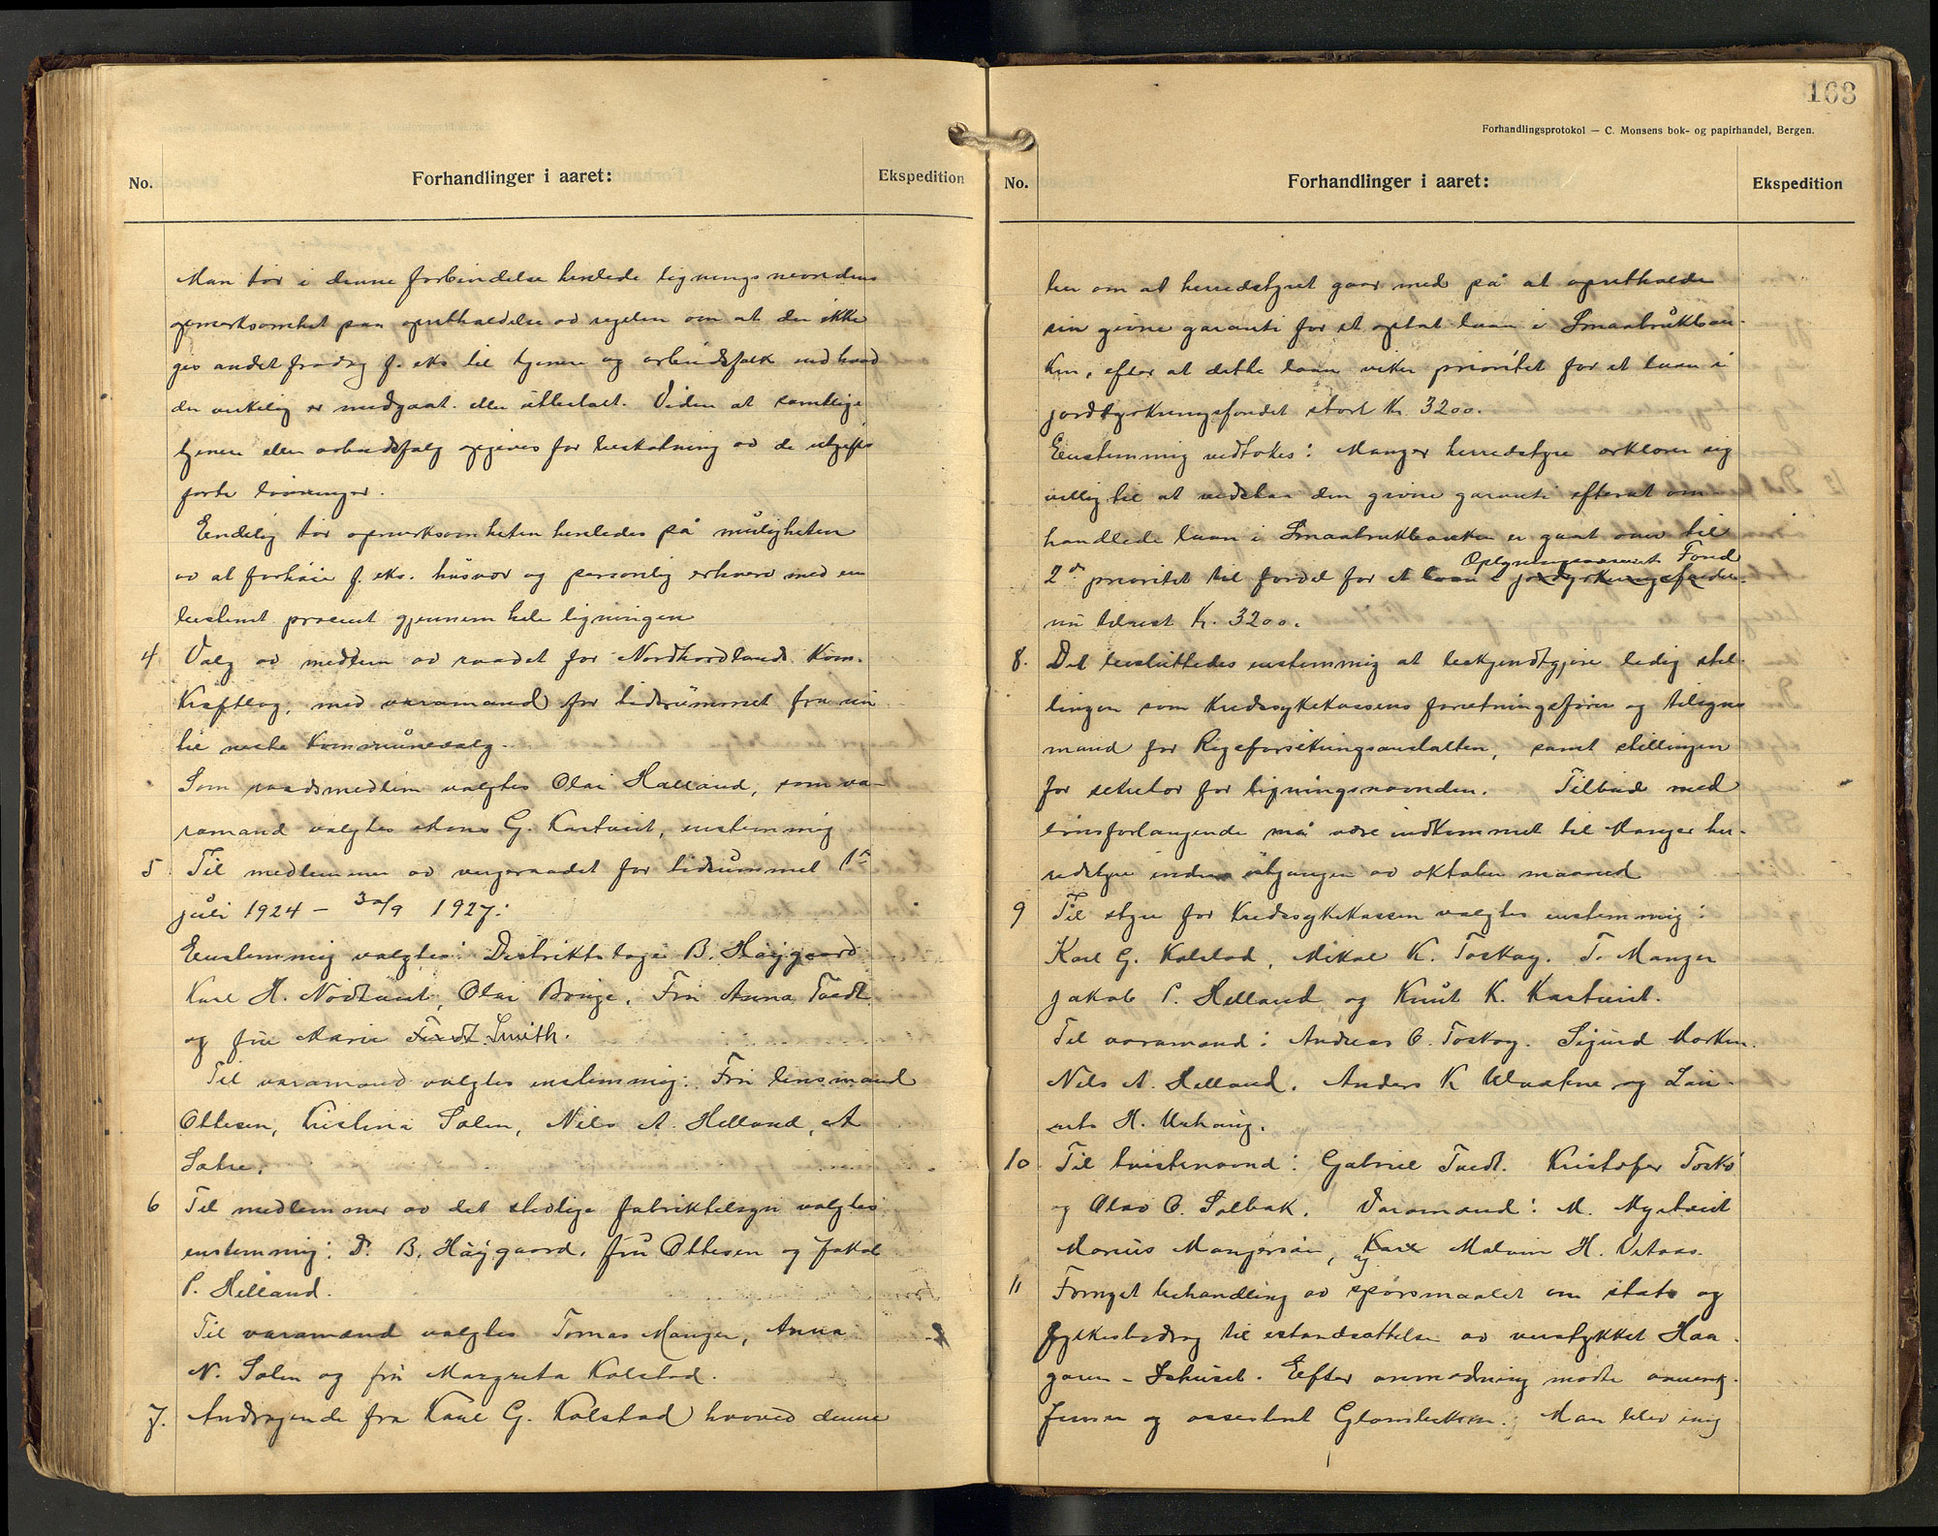 No.
Forhandlinger i aaret:
Ekspedition
Man tør i denne forbindelse henlede ligningsnevndens
opmerksomhet paa opretholdelse av regelen om at der ikke
gis andet fradrag f. eks til tjenere og arbeidsfolk end hvad
der virkelig er medgaat eller utbetalt. Viden at samtlige
tjenere eller arbeidsfolg opgives for beskatning av de utgifts
førte lønninger.
Endelig tør opmerksomheten henledes på muligheten
av at forhøie f. eks. husvær og personlig erhverv med en
bestemt procent gjennem hele ligningen
4 Valg av medlem av raadet for Nordhordland Kom.
Kraftlag, med varamand for tidsrummet fra nu
til neste Kommunevalg.
Som raadsmedlem valgtes Olai Halland, som va-
ramand valgtes Mons G. Kartveit, enstemmig
5 Til medlemmer av vergeraadet for tidsrummet 1ste
juli 1924 – 30/9 1927:
Eenstemmig valgtes: Distriktslæge B. Høygaard
Karl H. Nodtveit, Olai Boinge, Fru Anna Tvedt
og fru Marie Tvedt Smith.
Til varamænd valgtes enstemmig: Fru lensmand
Ottesen, Kristina Solem, Nils A. Helland, A
Sætre.
6 Til medlemmer av det stedlige fabriktilsyn valgtes
enstemmig: D. B. Høygaard, fru Ottesen og Jakob
P. Helland.
Til varamænd valgtes Tomas Manger, Anna
N. Solem og fru Margreta Kolstad.
7. Andragende fra Karl G. Kolstad hvorved denne
163
Forhandlingsprotokol — C. Monsens bok- og papirhandel, Bergen.
No.
Forhandlinger i aaret:
Ekspedition
ber om at herredstyret gaar med på at opretholde
sin givne garanti for et optat laan i Smaabrukban-
ken, efter at dette laan viker prioritet for et laan i
jorddyrkningsfondet stort kr. 3200.
Eenstemmig vedtokes: Manger herredstyre erklærer sig
villig til at vedstaa den givne garanti efterat om-
handlede laan i Smaabrukbanken er gaat over til
Oplysningsvesenets Fond
2den prioritet til fordel for et laan i jorddyrkningsfondet
nu tilrest kr. 3200.
8. Det besluttedes enstemmig at bekjendtgjøre ledig stil-
lingen som kredssykekassens forretningsfører og tilsyns
mand for Rigsforsikringsanstalten, samt stillingen
for sekretær for ligningsnevnden. Tilbud med
lønsforlangende må være indkommet til Manger her-
redstyre inden utgangen av oktober maaned
9 Til styre for kredssykekassen valgtes enstemmig:
Karl G. Kolstad, Mikal K. Toskay. T. Manger
Jakob P. Helland og Knut K. Kartveit.
Til varamænd: Andreas O. Toskay. Sigurd Morken.
Nils A. Helland. Anders K og Lau-
rits H.
10 Til tvistenevnd: Gabriel Tvedt. Kristofer Toskø
og Olav O. Solbak. Varamænd: M. Myrtveit
Marius Mangersøn, Karl og Malvin H. Vetaas.
11 Fornyet behandling av spørsmaalet om stats og
fylkesbidrag til istandsættelse av veistykket Haa-
garen - Ishuset. Efter anmodning møtte aveing.
Jensen og assistent Glombekken. Man blev enig